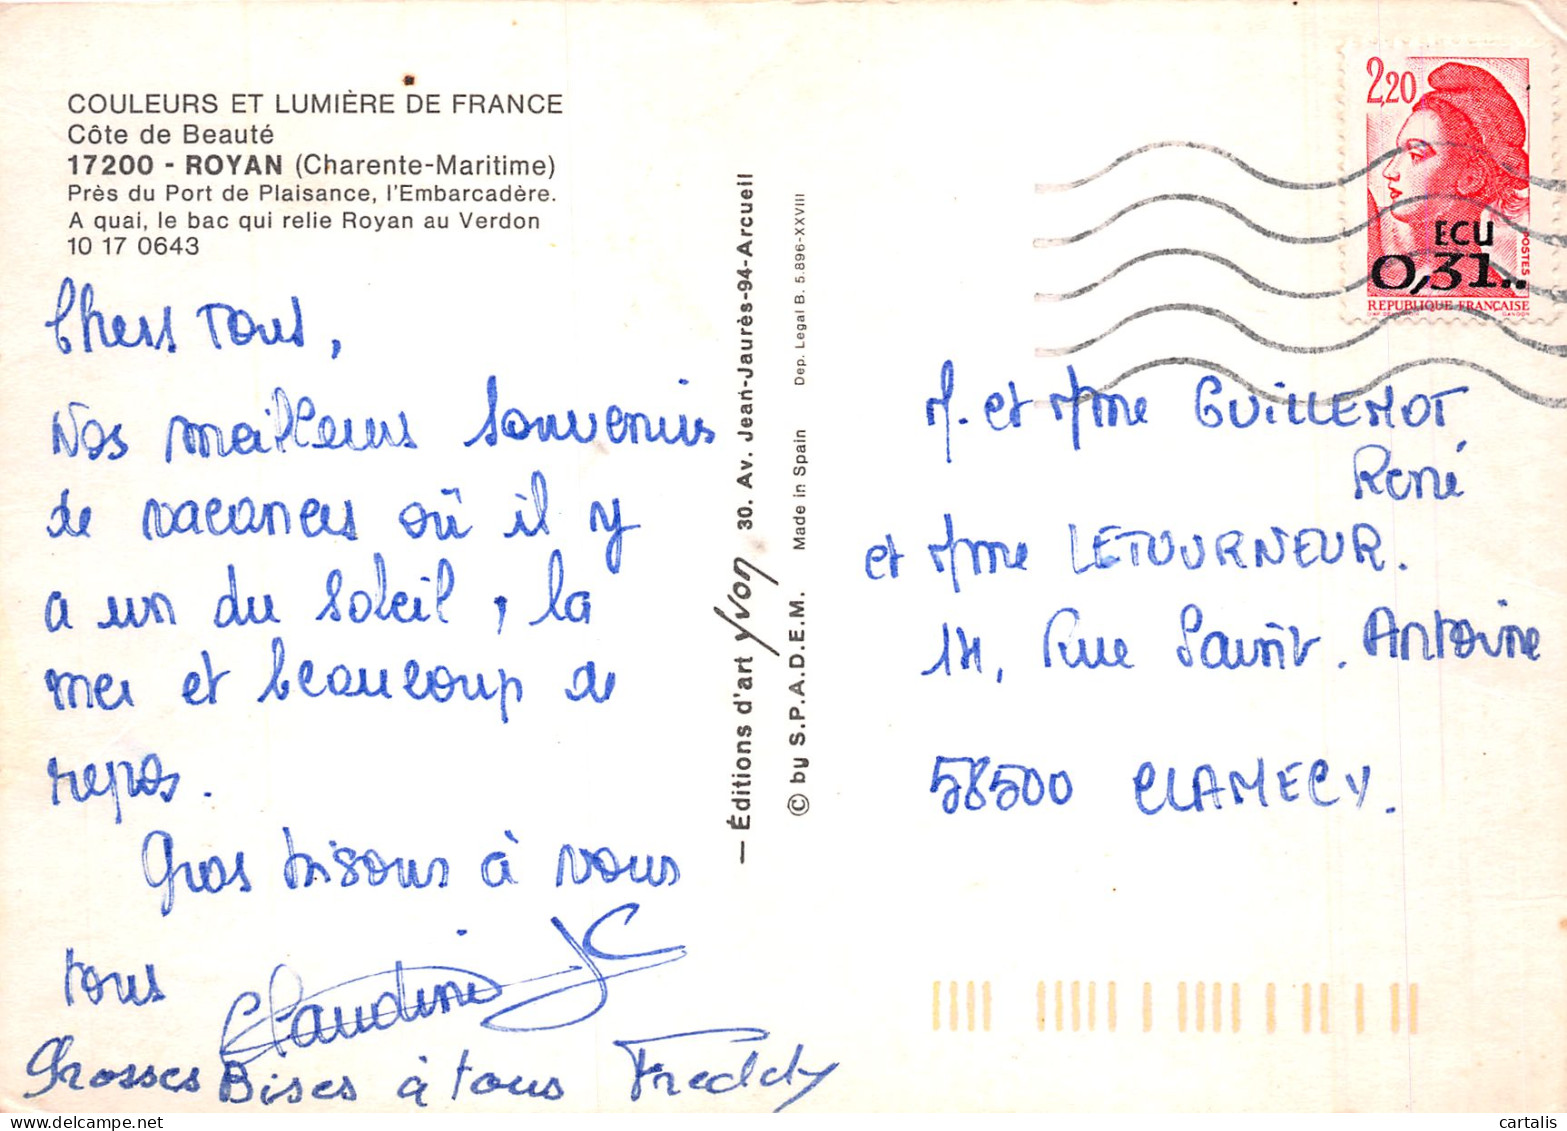 COULEURS ET LUMIÈRE DE FRANCE
Côte de Beauté
17200 - ROYAN (Charente-Maritime)
Près du Port de Plaisance, l'Embarcadère.
A quai, le bac qui relie Royan au Verdon
10 17 0643
Chers Tous,
Nos meilleurs souvenirs
de vacances où il y
a un du soleil, la
mer et beaucoup de
repos.
Gros bisous à vous
tous
Claudine JC
Grosses Bises à tous Freddy
— Éditions d'art yvon 30. Av. Jean-Jaurès-94-Arcueil
© by S.P.A.D.E.M. Made in Spain Dep. Legal B. 5.896-XXVIII
2,20
ECU
0,31..
POSTES
REPUBLIQUE FRANÇAISE
GANDON
M. et Mme GUILLEMOT
René
et Mme LETOURNEUR.
14, Rue Saint. Antoine
58500 CLAMECY.
cartalis